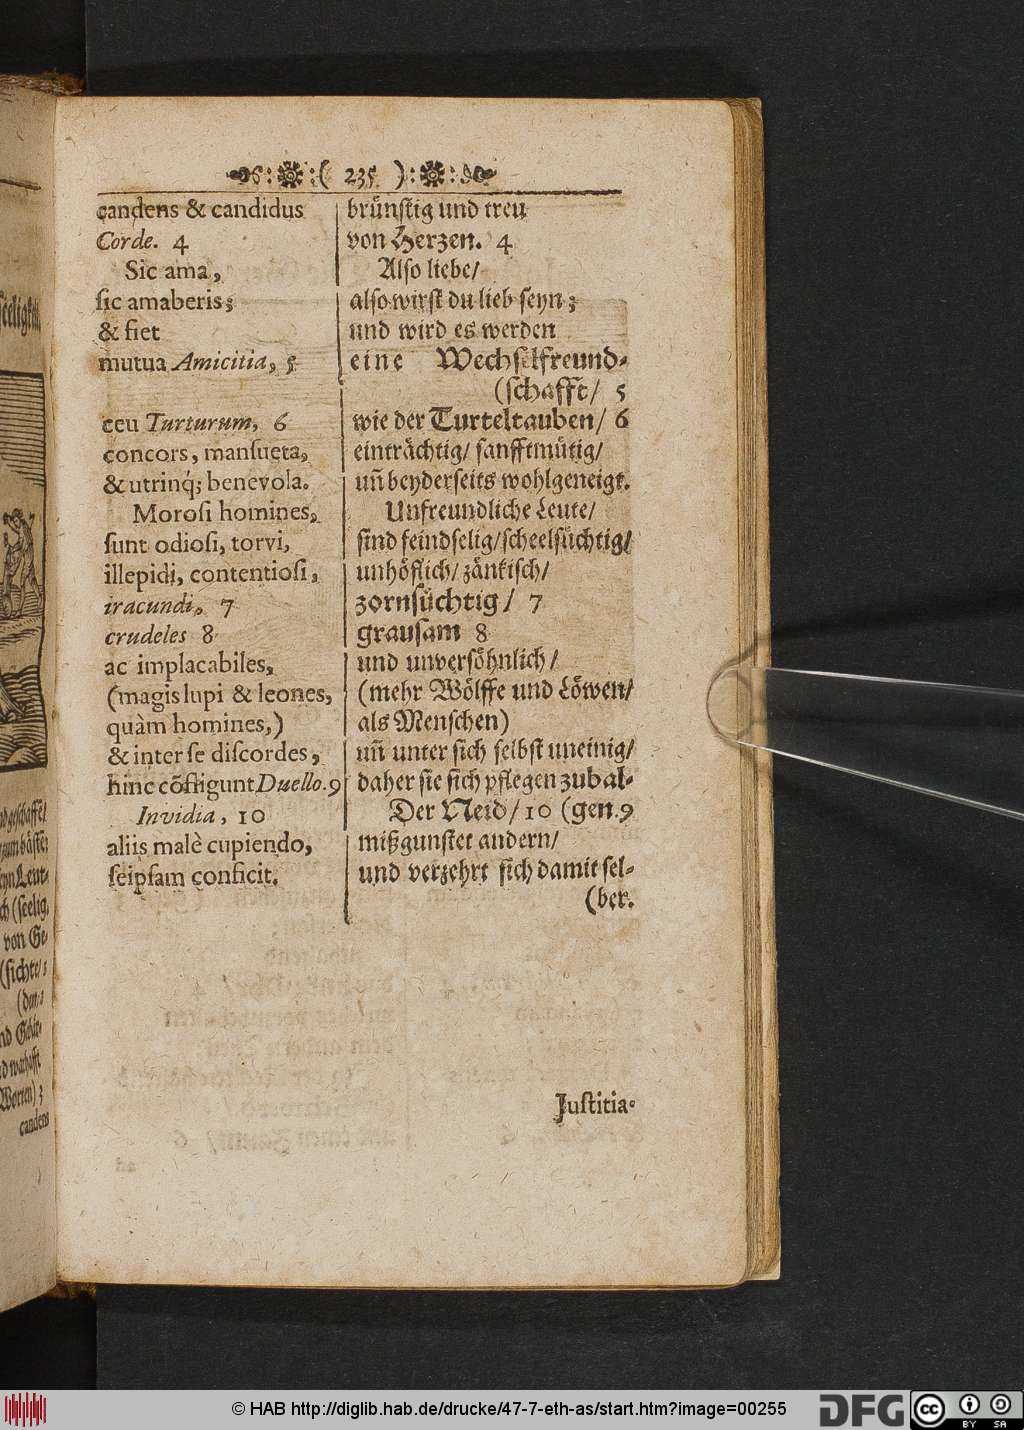 :( 235 ):
candens & candidus
Corde. 4
Sic ama,
sic amaberis;
& fiet
mutua Amicitia, 5
ceu Turturum, 6
concors, mansueta,
& utrinq; benevola.
Morosi homines,
sunt odiosi, torvi,
illepidi, contentiosi,
iracundi, 7
crudeles 8
ac implacabiles,
(magis lupi & leones,
quàm homines,)
& inter se discordes,
hinc cõfligunt Duello. 9
Invidia, 10
aliis malè cupiendo,
seipsam conficit.
brünstig und treu
von Herzen. 4
Also liebe/
also wirst du lieb seyn;
und wird es werden
eine Wechselfreund-
(schafft/ 5
wie der Turteltauben/ 6
einträchtig/ sanfftmütig/
uñ beyderseits wohlgeneigt.
Unfreundliche Leute/
sind feindselig/ scheelsüchtig/
unhöflich/ zänkisch/
zornsüchtig/ 7
grausam 8
und unversöhnlich/
(mehr Wölffe und Löwen/
als Menschen)
uñ unter sich selbst uneinig/
daher sie sich pflegen zu bal-
Der Neid/ 10 (gen. 9
mißgunstet andern/
und verzehrt sich damit sel-
(ber.
Justitia.
© HAB http://diglib.hab.de/drucke/47-7-eth-as/start.htm?image=00255
DFG
cc
BY SA